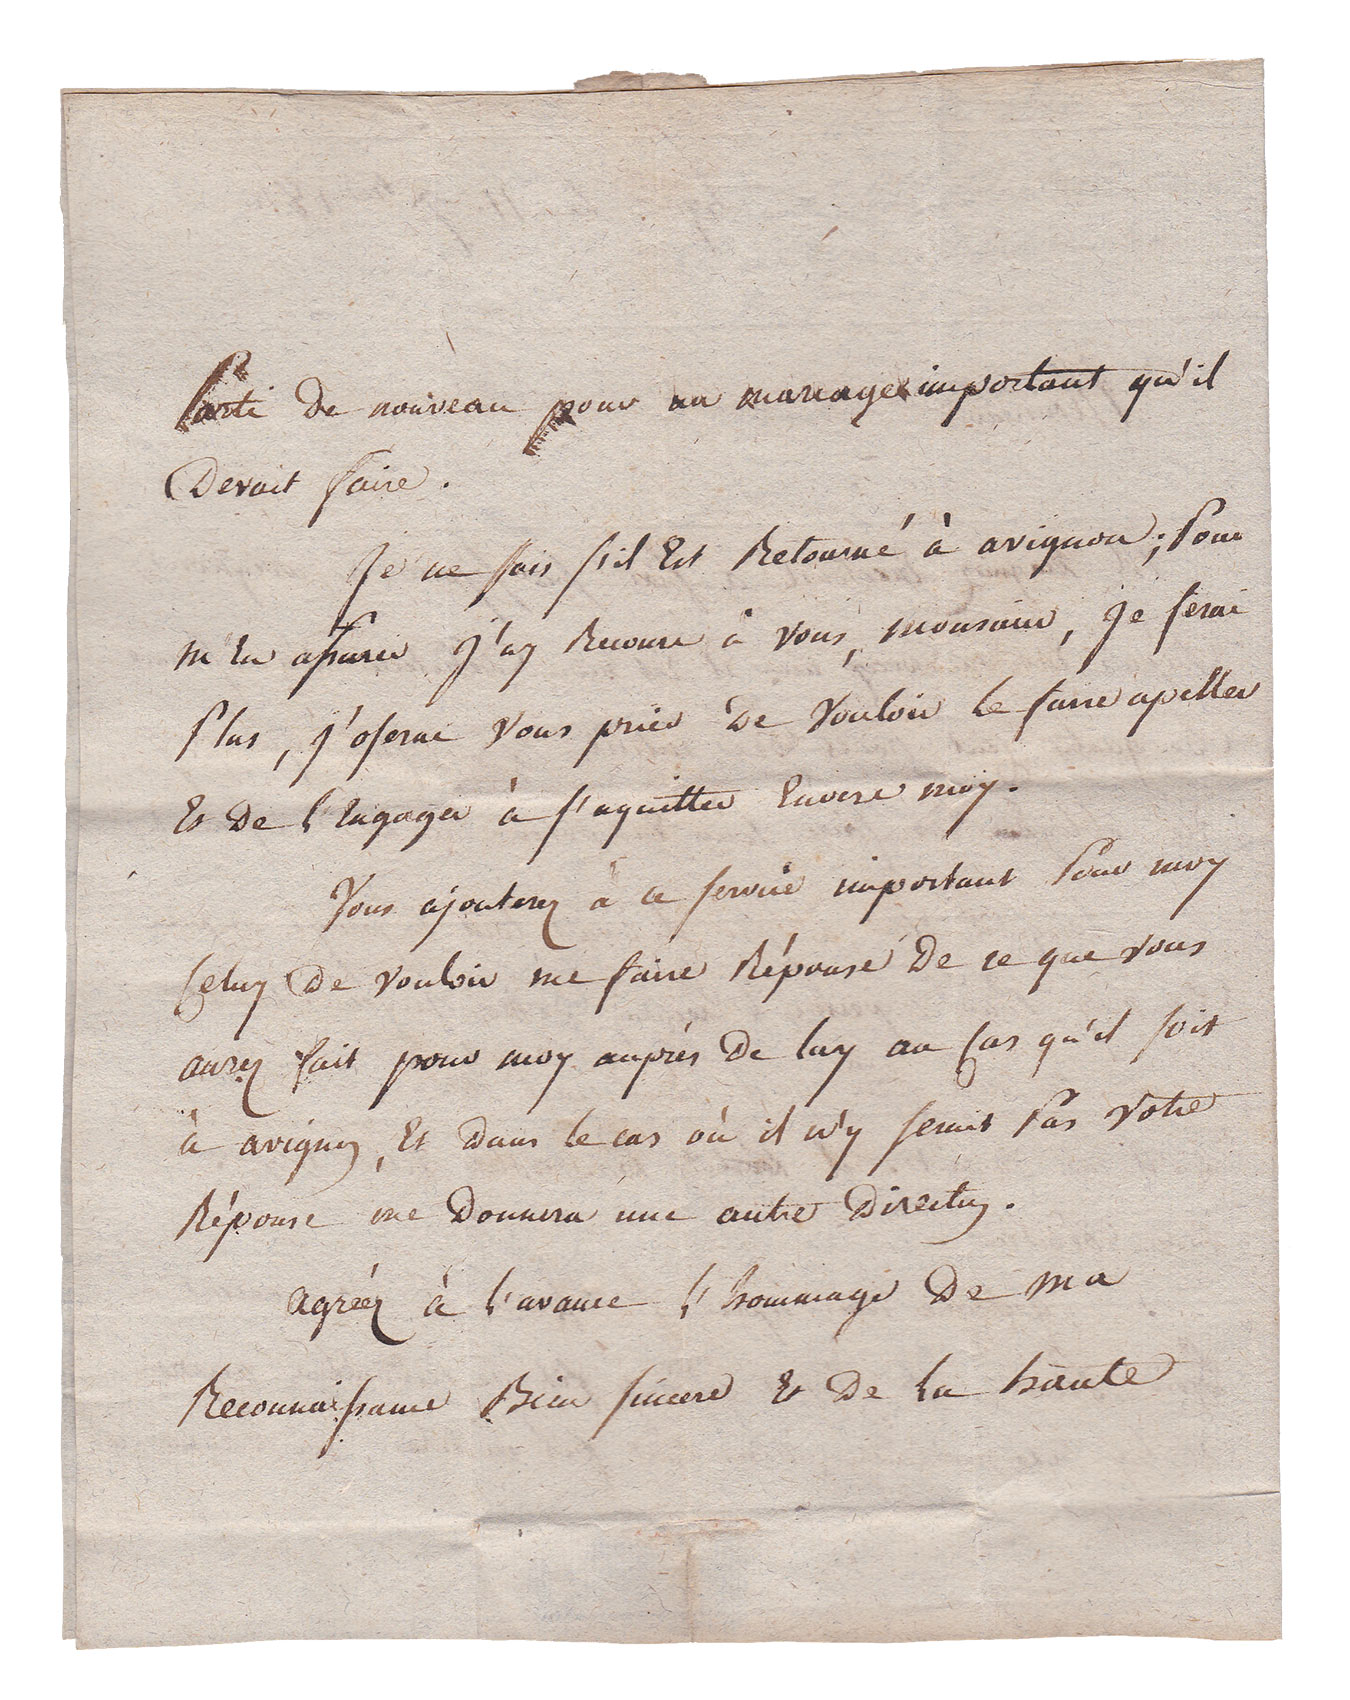 Parti de nouveau pour un mariage important qu'il
Devait faire.
Je ne sais s'il Est Retourné à avignon; Pour
m'En assurer J'ay Recours à Vous, monsieur, Je ferai
Plus, j'oserai Vous prier De Vouloir le faire apeller
Et De l'Engager à s'aquitter Envers moy.
Vous ajouterez à ce service important Pour moy
Celuy De Vouloir me faire Réponse De ce que Vous
aurez fait pour moy auprès De luy au Cas qu'il soit
à avignon, Et Dans le cas où il n'y serait Pas Votre
Réponse me Donnera une autre Direction.
agréez à l'avance l'hommage De Ma
Reconnaissance Bien sincere Et De la haute